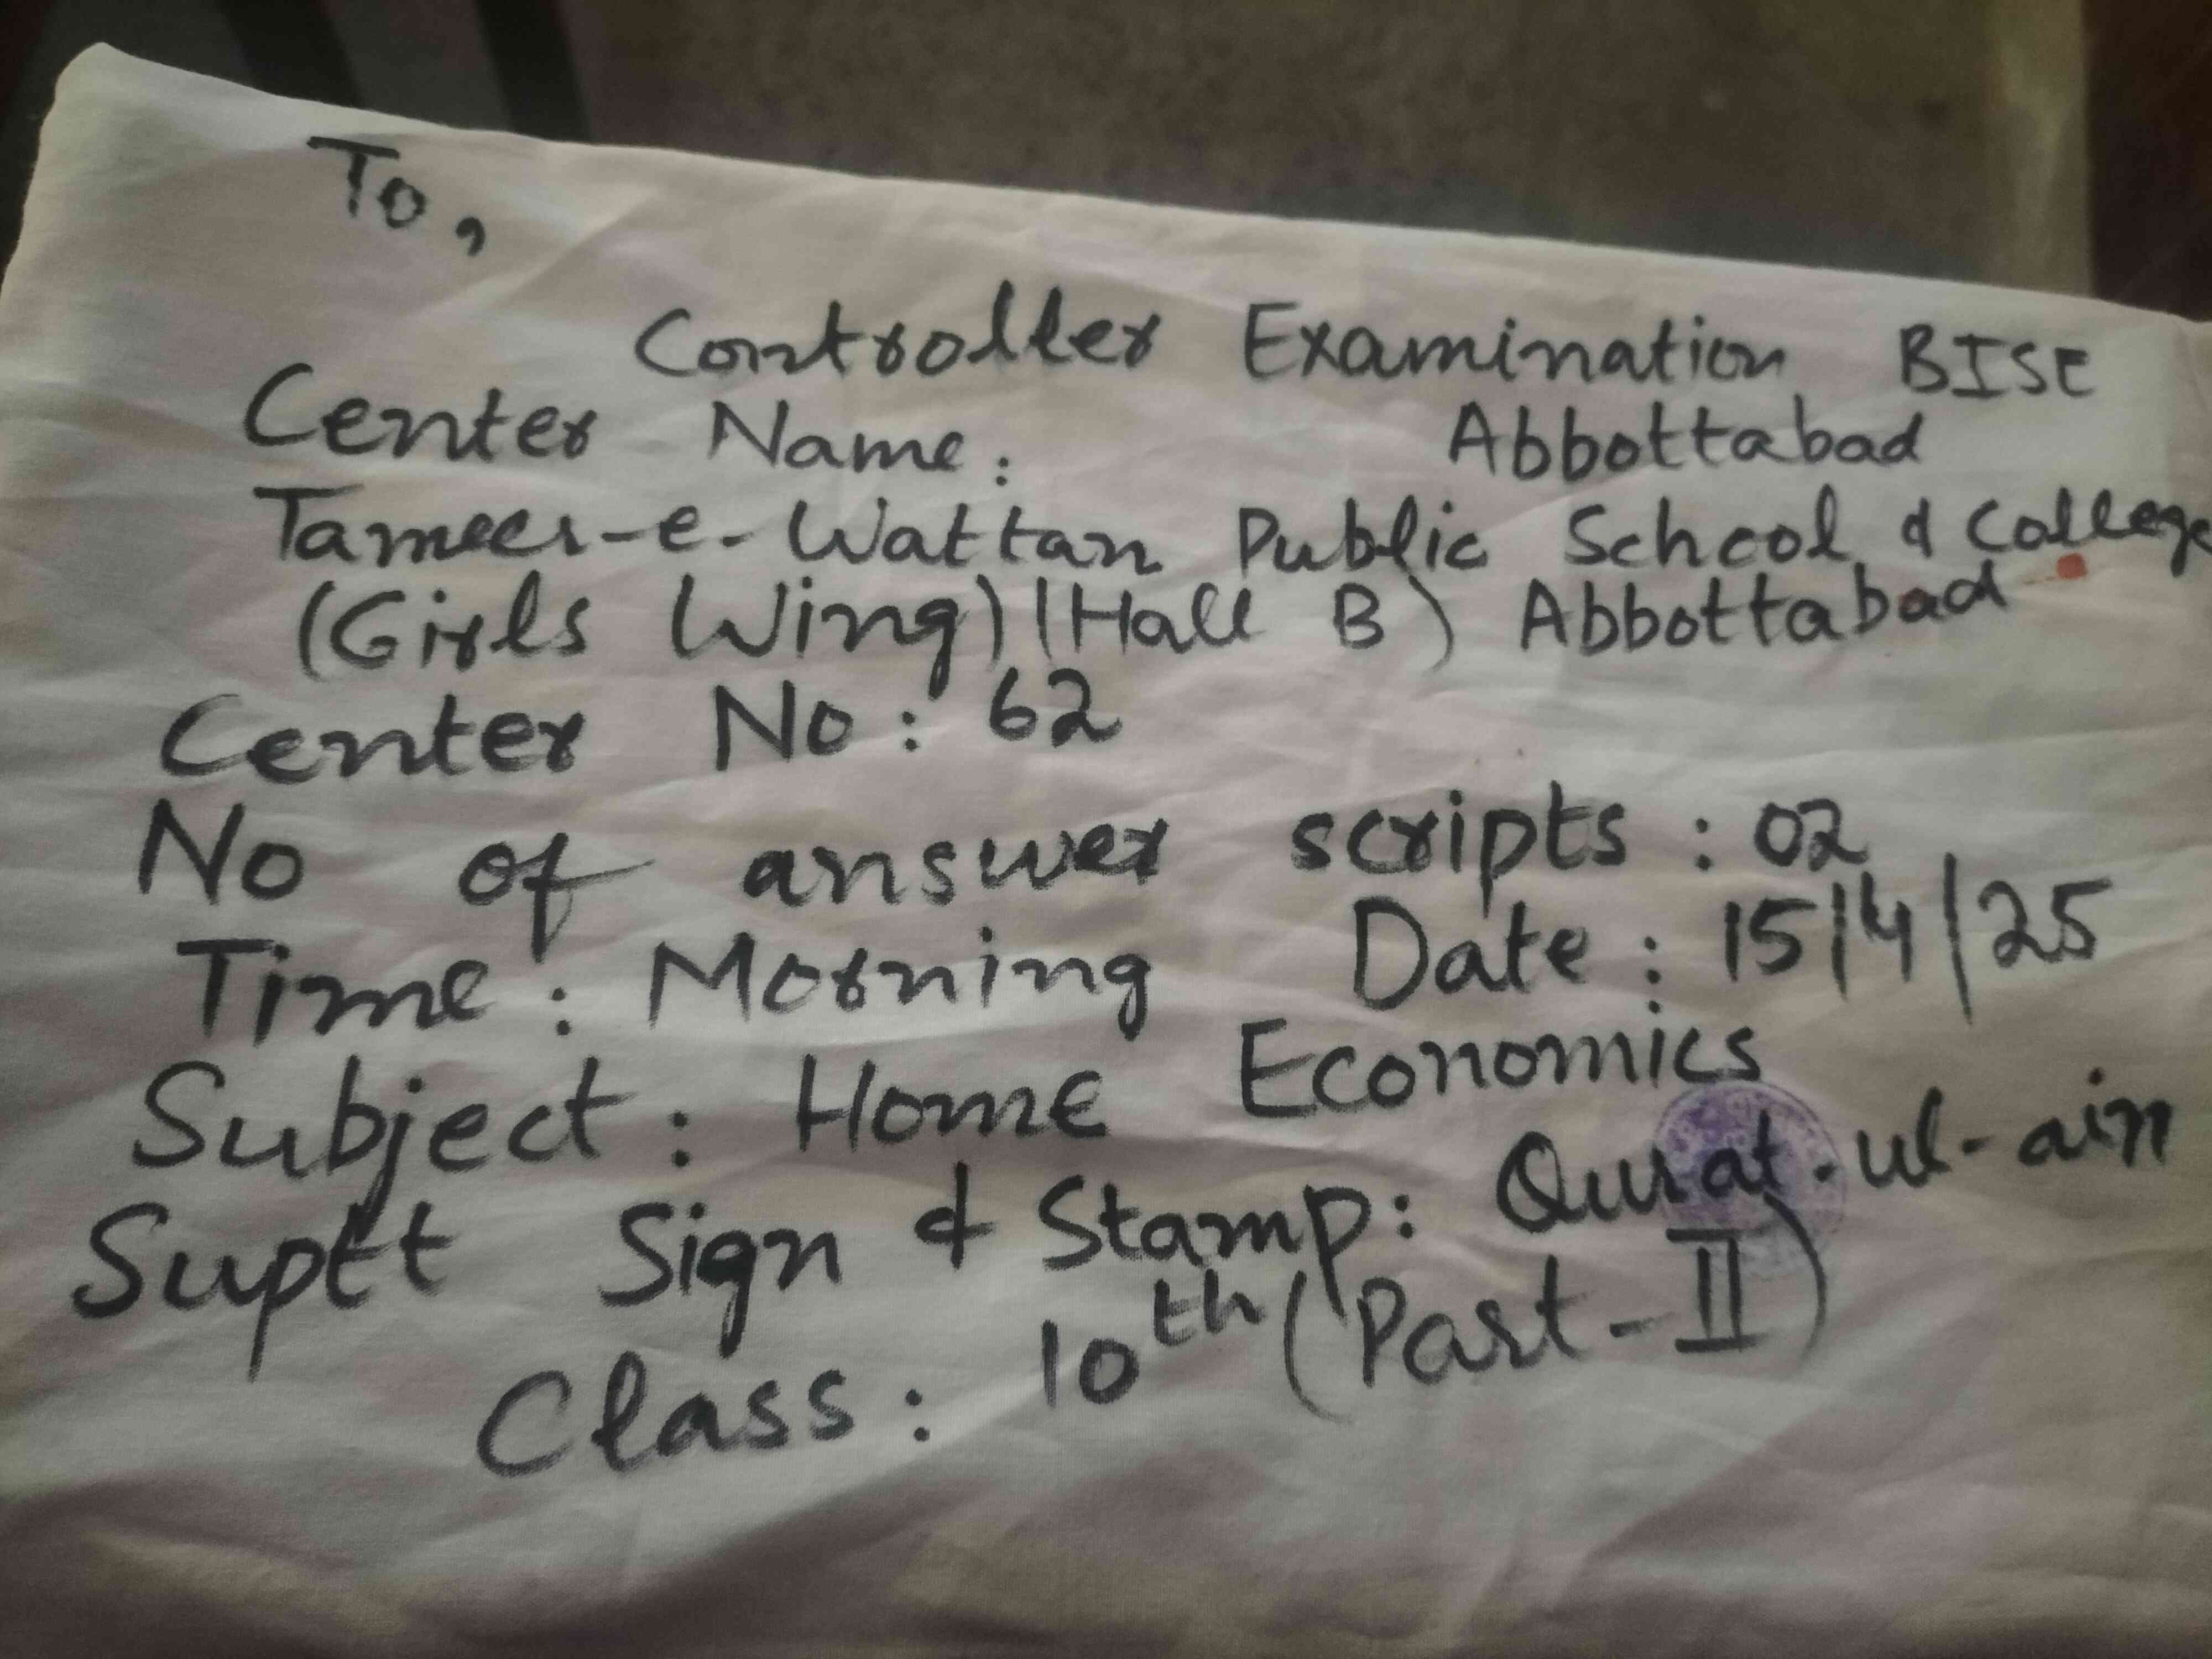 To,
Controller Examination BISE
Abbottabad
Center Name:
Tameer-e-Wattan Public School & College
(Girls Wing) (Hall B) Abbottabad
Center No: 62
No of answer scripts: 02
Time: Morning Date: 15/4/25
Subject: Home Economics
Suptt Sign & Stamp: Qurat-ul-ain
Class: 10th (Part-II)